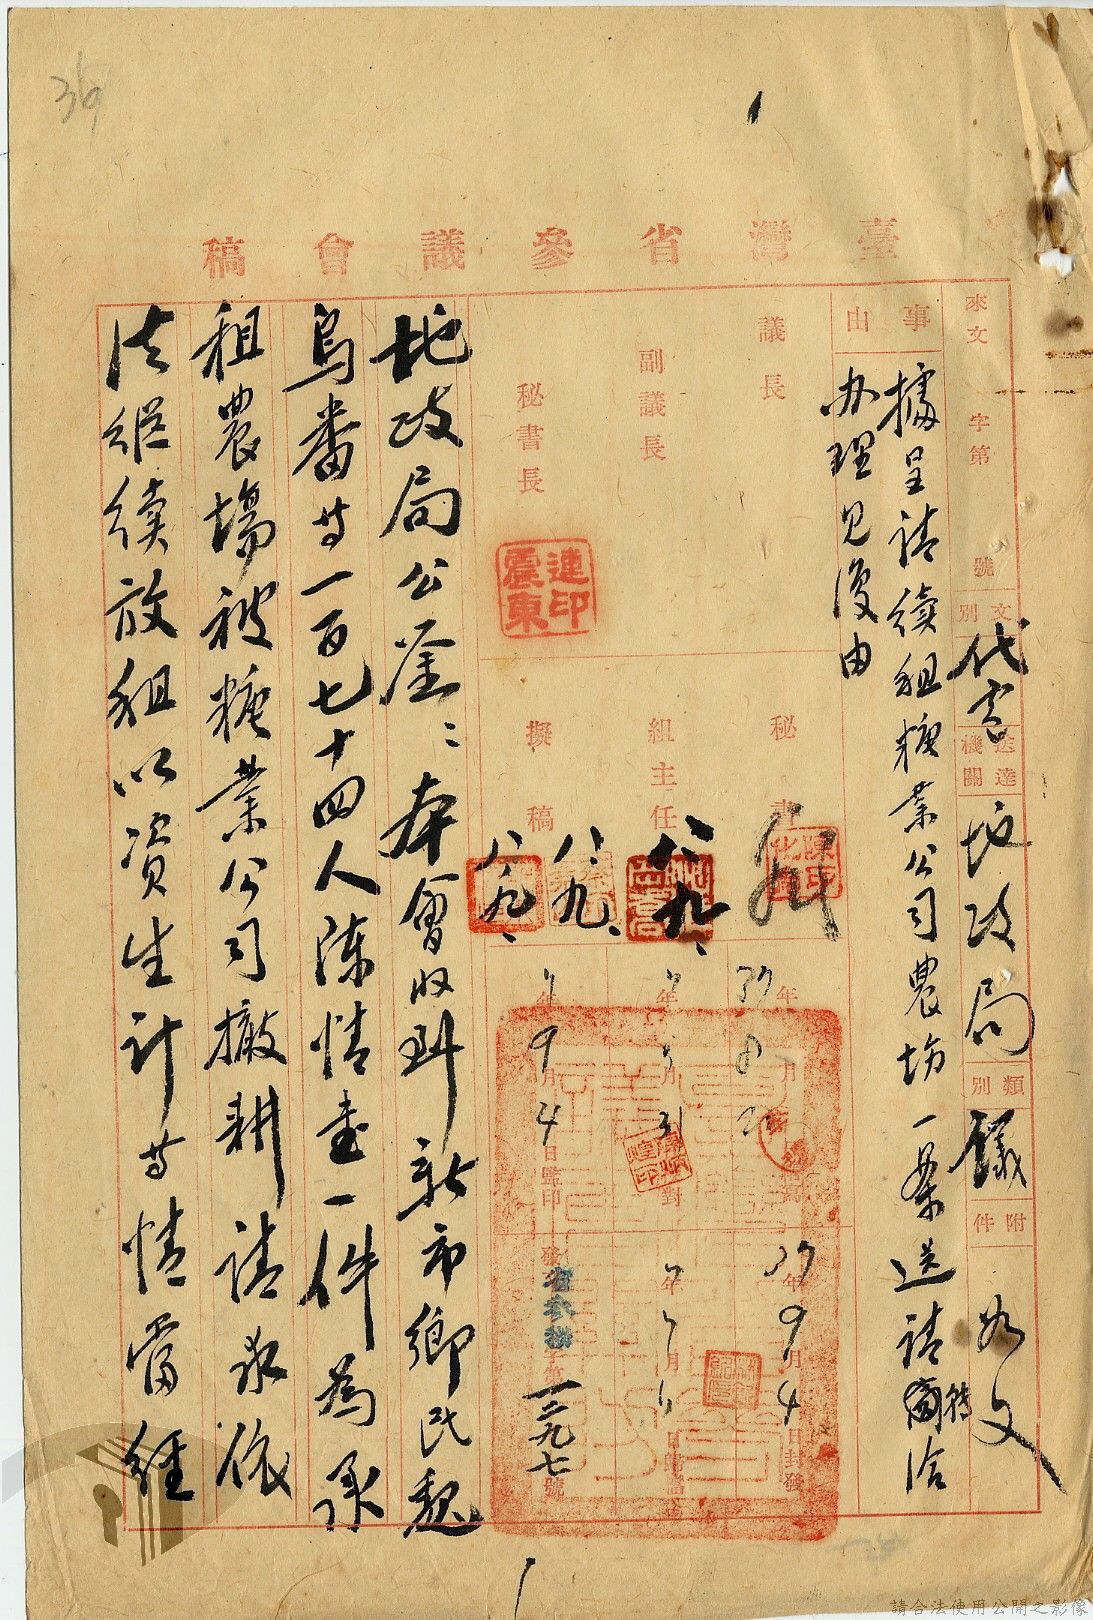 39
臺灣省參議會稿
來文 字第 號
文別 代電
送達機關 地政局
類別 議
附件 如文
事由
據呈請續租糖業公司農場一案送請轉洽
办理見復由
議長
副議長
秘書長
連震東印
秘書
組主任
擬稿
八、九、
八、九、
八、九、
37年8月
年9月4日監印
37年9月4日封發
發 省參 字第一二九七號
地政局公鑒：本會收到新市鄉民魏
烏番等一百七十四人陳情書一件為承
租農場被糖業公司撤耕請求依
法繼續放租以資生計等情當經
請合法使用公開之影像